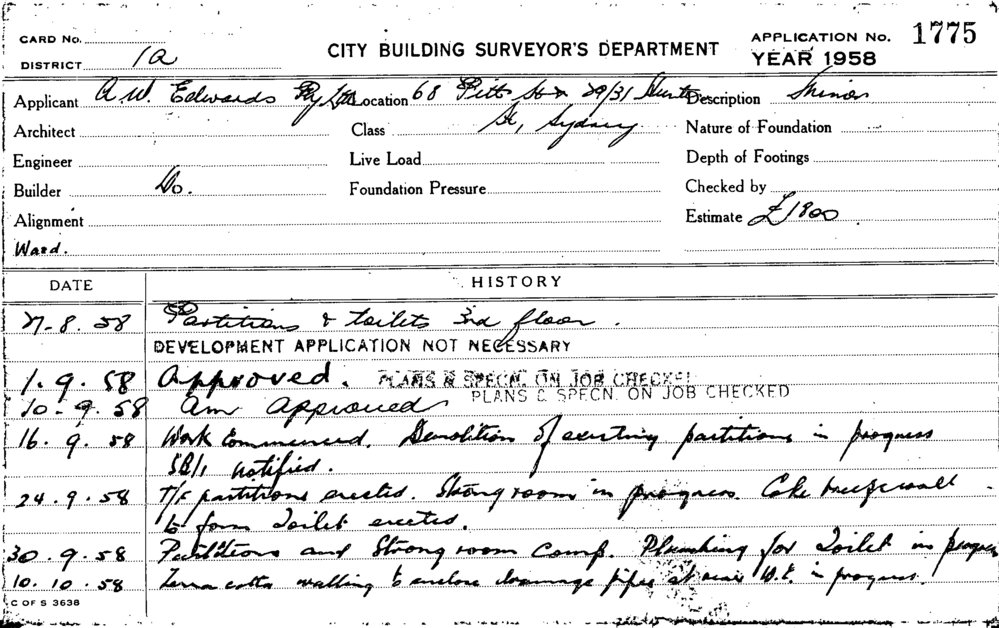 CARD No.
CITY BUILDING SURVEYOR'S DEPARTMENT
APPLICATION No. 1775
DISTRICT 1a
YEAR 1958
Applicant A.W. Edwards Pty Ltd Location 68 Pitt St & 29/31 Hunter Description Minor
Architect Class St, Sydney Nature of Foundation
Engineer Live Load Depth of Footings
Builder Do. Foundation Pressure Checked by
Alignment Estimate £1800
Ward.
DATE HISTORY
27-8-58 Partitions & toilets 3rd floor.
DEVELOPMENT APPLICATION NOT NECESSARY
1.9.58 Approved. PLANS & SPECN. ON JOB CHECKED
10-9.58 Am approved PLANS & SPECN. ON JOB CHECKED
16.9.58 Work Commenced. Demolition of existing partitions in progress
SB/1 notified.
24.9.58 T/C partitions erected. Strong room in progress. Coke breeze wall
to form Toilet erected.
30.9.58 Partitions and Strong room Comp. Plumbing for Toilet in progress
10.10.58 Terra cotta walling to enclose drainage pipes at rear W.C. in progress.
C OF S 3638